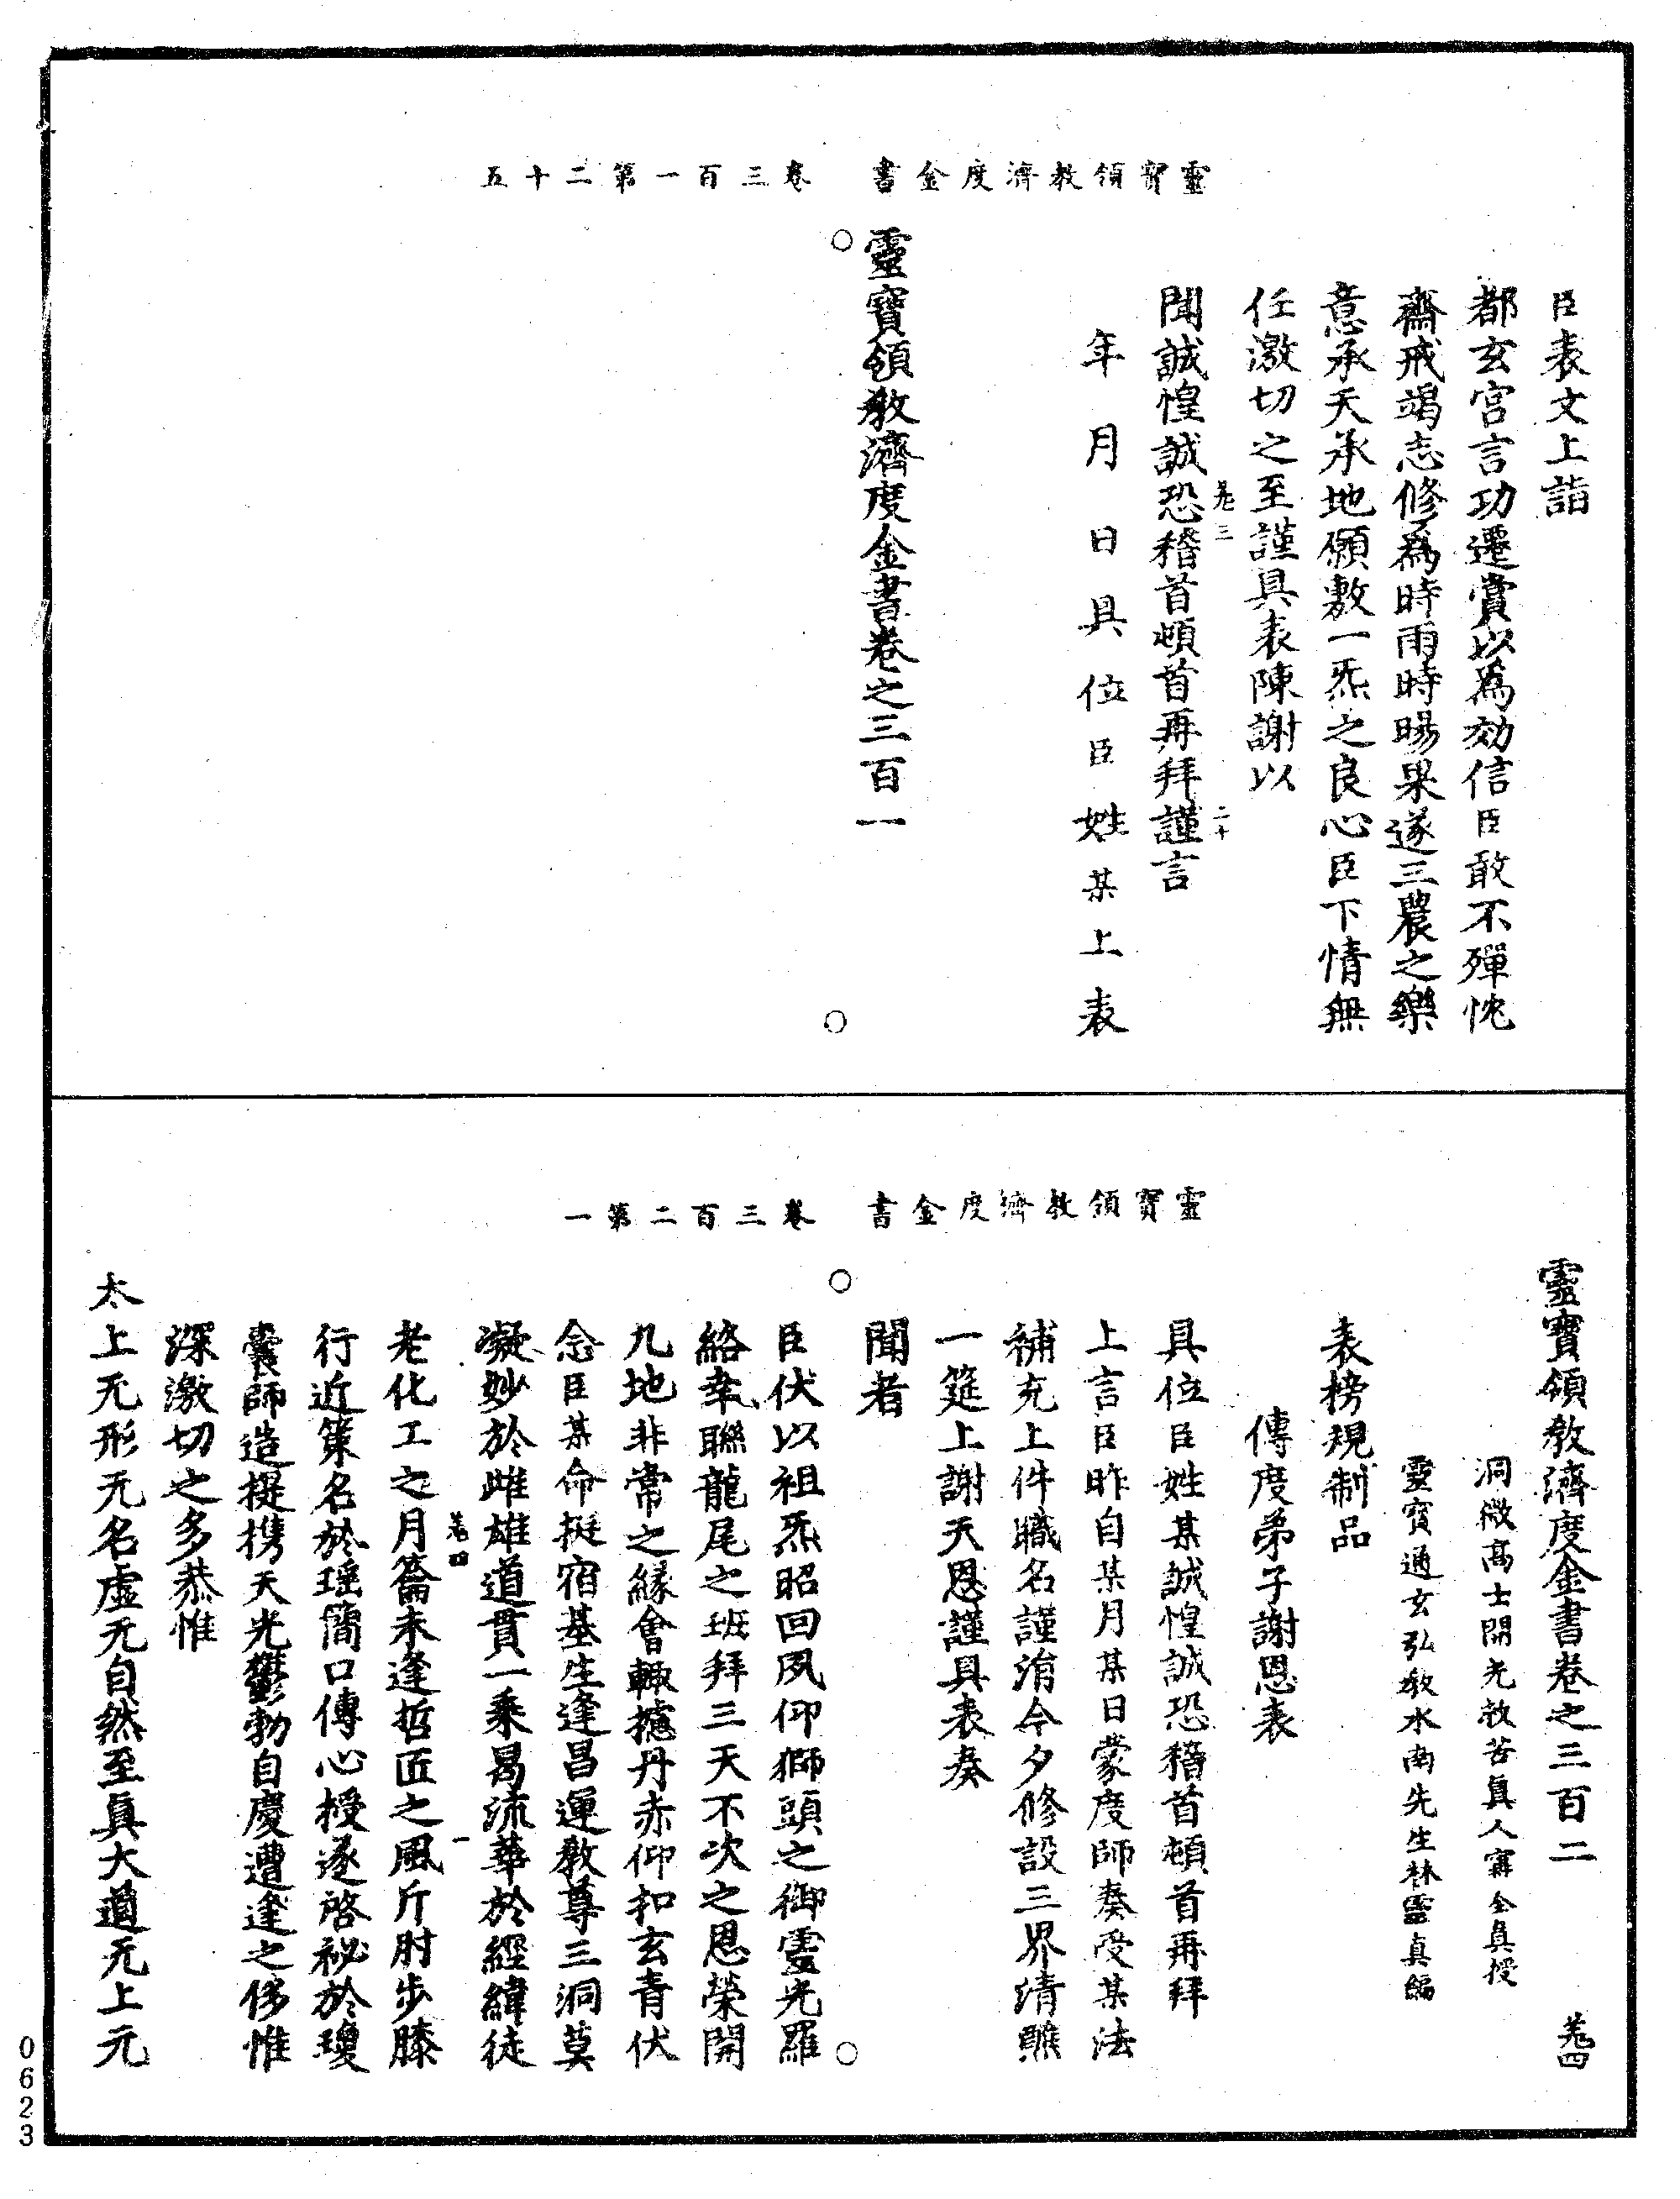 靈寶領教濟度金書　卷三百一第二十五
臣表文上詣
都玄宫言功遷賞以爲効信臣敢不殫忱
齋戒竭志修爲時雨時暘果遂三農之樂
意承天承地願敷一炁之良心臣下情無
任激切之至謹具表陳謝以
聞誠惶誠恐稽首頓首再拜謹言
年月日具位臣姓某上表
靈寶領教濟度金書卷之三百一
靈寶領教濟度金書　卷三百二第一
靈寶領教濟度金書卷之三百二
洞微高士開光救苦真人甯全真授
靈寶通玄弘教水南先生林靈真編
表榜規制品
傳度弟子謝恩表
具位臣姓某誠惶誠恐稽首頓首再拜
上言臣昨自某月某日蒙度師奏受某法
補充上件職名謹涓今夕修設三界清醮
一筵上謝天恩謹具表奏
聞者
臣伏以祖炁昭回夙仰獅頭之御靈光羅
絡幸聯龍尾之班拜三天不次之恩榮開
九地非常之緣會輙攄丹赤仰扣玄青伏
念臣某命挺宿基生逢昌運教尊三洞莫
凝妙於雌雄道貫一乘曷流華於經緯徒
老化工之月籥未逢哲匠之風斤肘步膝
行近策名於瑶簡口傳心授遂啓祕於瓊
囊師造提携天光鬱勃自慶遭逢之侈惟
深激切之多恭惟
太上无形无名虚无自然至真大道无上元
0623